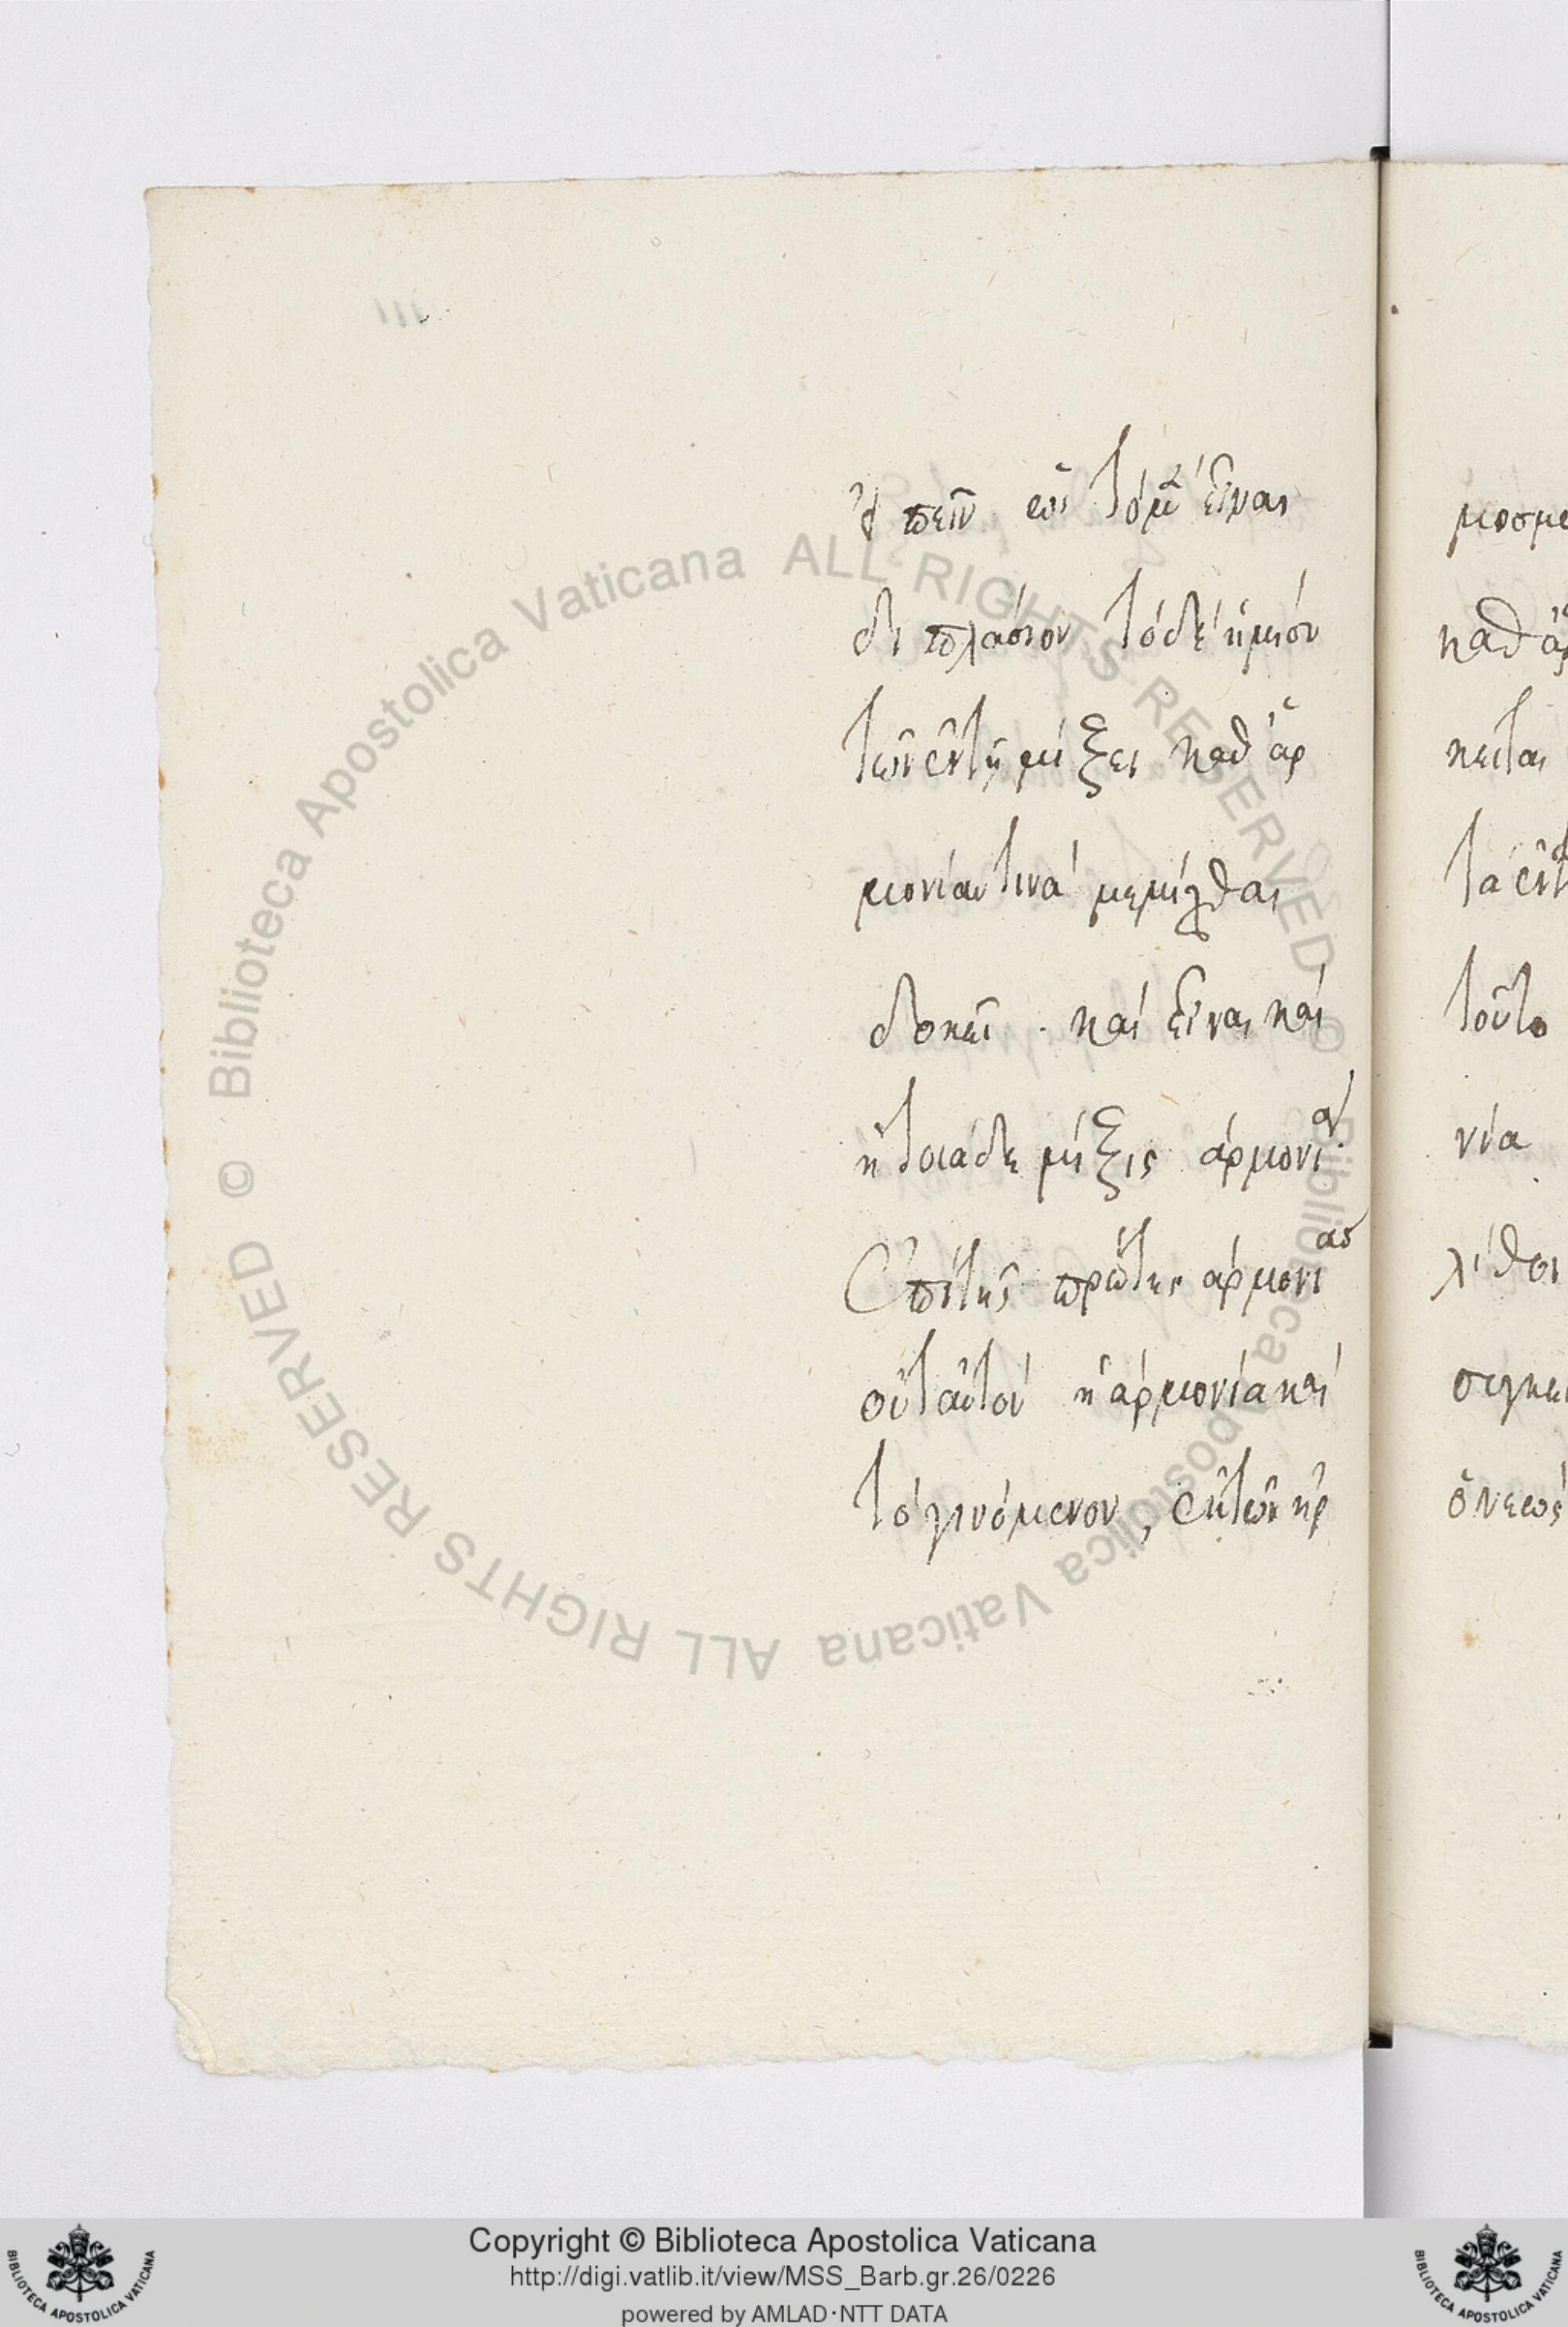 εἰπεῖν ὡς τὸ μὲν εἶναι
διπλάσιον τὸ δὲ ἥμισυ
τῶν ἐν τῇ μίξει καθ' ἁρ
μονίαν τινά μεμίχθαι
δοκεῖ . καὶ εἶναι καὶ
ἡ τοιάδε μίξις ἁρμονίαν.
ἐπὶ τῆς πρώτης ἁρμονίας
οὐ ταὐτὸν ἡ ἁρμονία καὶ
τὸ γινόμενον, ἐκ τῶν ἡρ
μοσμε
καθ' ἁρ
κειται
τὰ ἐν τ
τοῦτο
νία
λίθοι
συγκει
ὁ νεώς
Biblioteca Apostolica Vaticana ALL RIGHTS RESERVED ©
Biblioteca Apostolica Vaticana ALL RIGHTS RESERVED ©
Copyright © Biblioteca Apostolica Vaticana
http://digi.vatlib.it/view/MSS_Barb.gr.26/0226
powered by AMLAD·NTT DATA
BIBLIOTECA APOSTOLICA VATICANA
BIBLIOTECA APOSTOLICA VATICANA